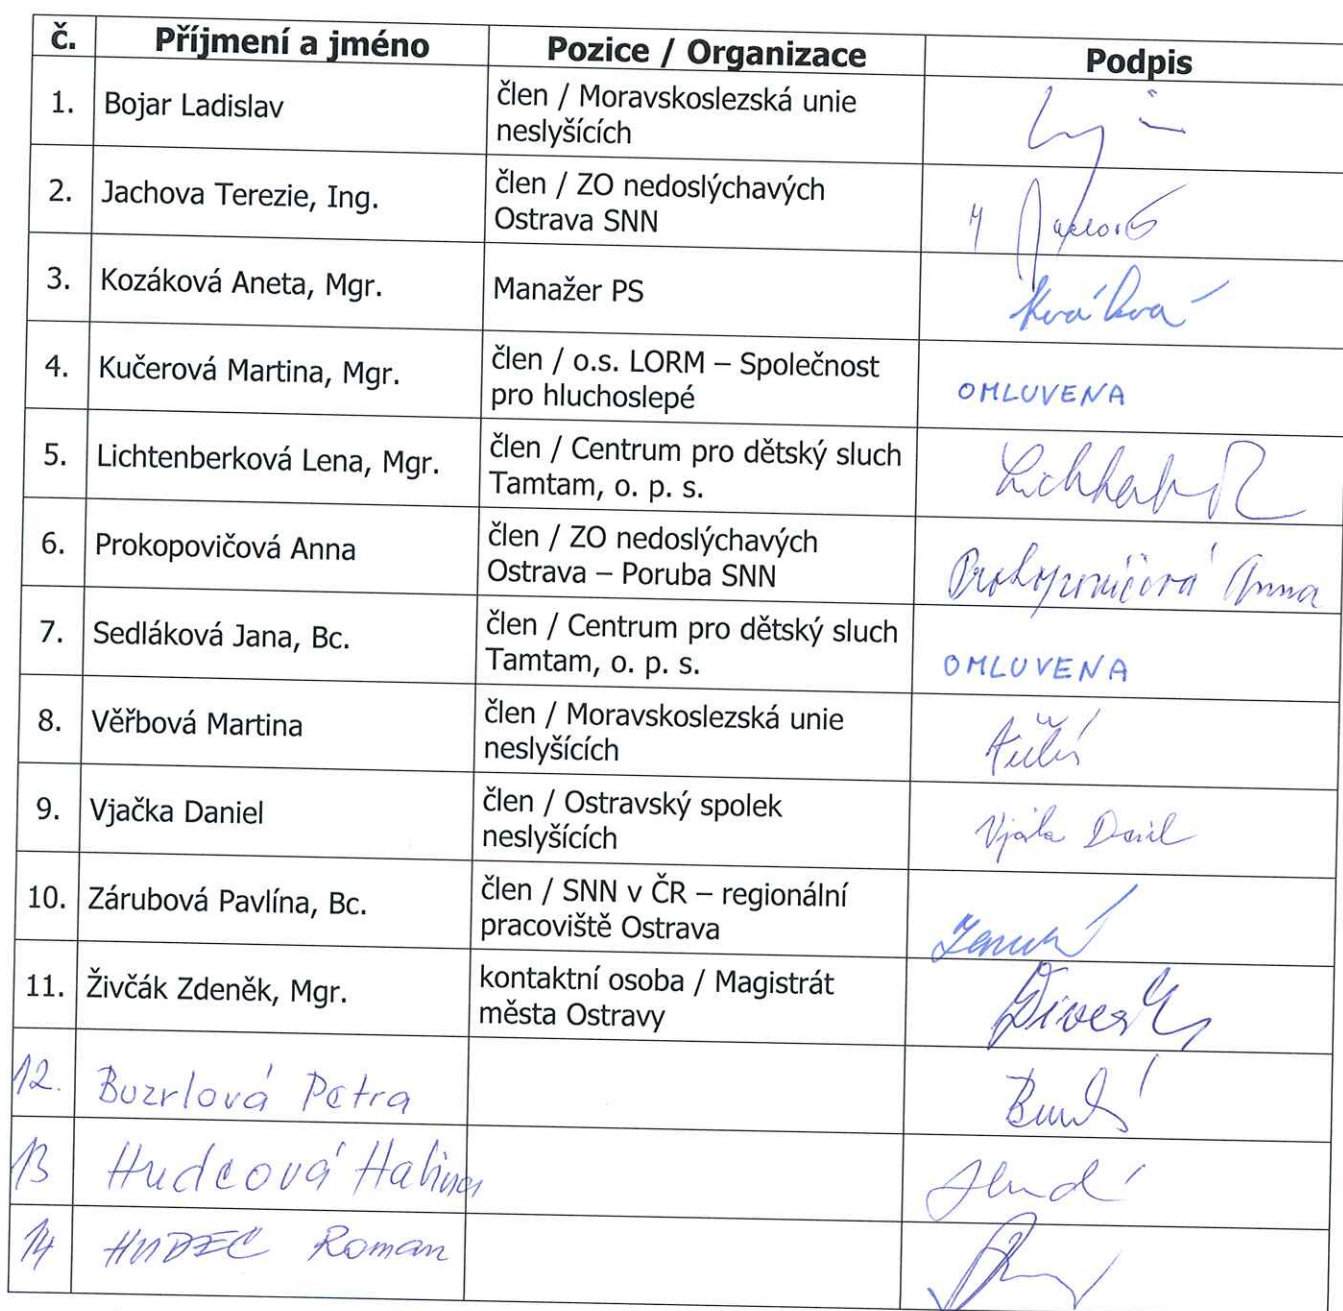 č. Příjmení a jméno Pozice / Organizace Podpis
1. Bojar Ladislav člen / Moravskoslezská unie
neslyšících
2. Jachova Terezie, Ing. člen / ZO nedoslýchavých
Ostrava SNN
3. Kozáková Aneta, Mgr. Manažer PS
4. Kučerová Martina, Mgr. člen / o.s. LORM – Společnost
pro hluchoslepé OMLUVENA
5. Lichtenberková Lena, Mgr. člen / Centrum pro dětský sluch
Tamtam, o. p. s.
6. Prokopovičová Anna člen / ZO nedoslýchavých
Ostrava – Poruba SNN Prokopovičová Anna
7. Sedláková Jana, Bc. člen / Centrum pro dětský sluch
Tamtam, o. p. s. OMLUVENA
8. Věřbová Martina člen / Moravskoslezská unie
neslyšících
9. Vjačka Daniel člen / Ostravský spolek
neslyšících
10. Zárubová Pavlína, Bc. člen / SNN v ČR – regionální
pracoviště Ostrava
11. Živčák Zdeněk, Mgr. kontaktní osoba / Magistrát
města Ostravy
12. Buzrlová Petra
13 Hudcová Halina
14 HUDEC Roman